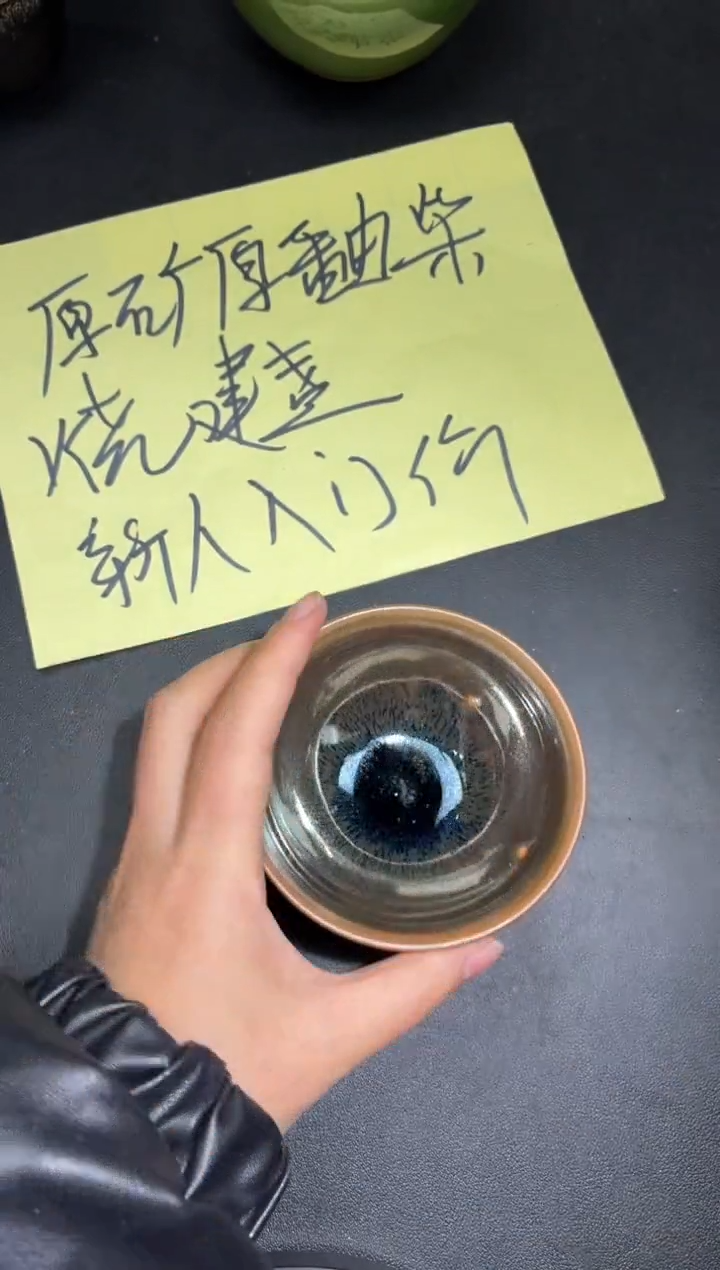 原矿原釉柴
烧建盏
新人入门价